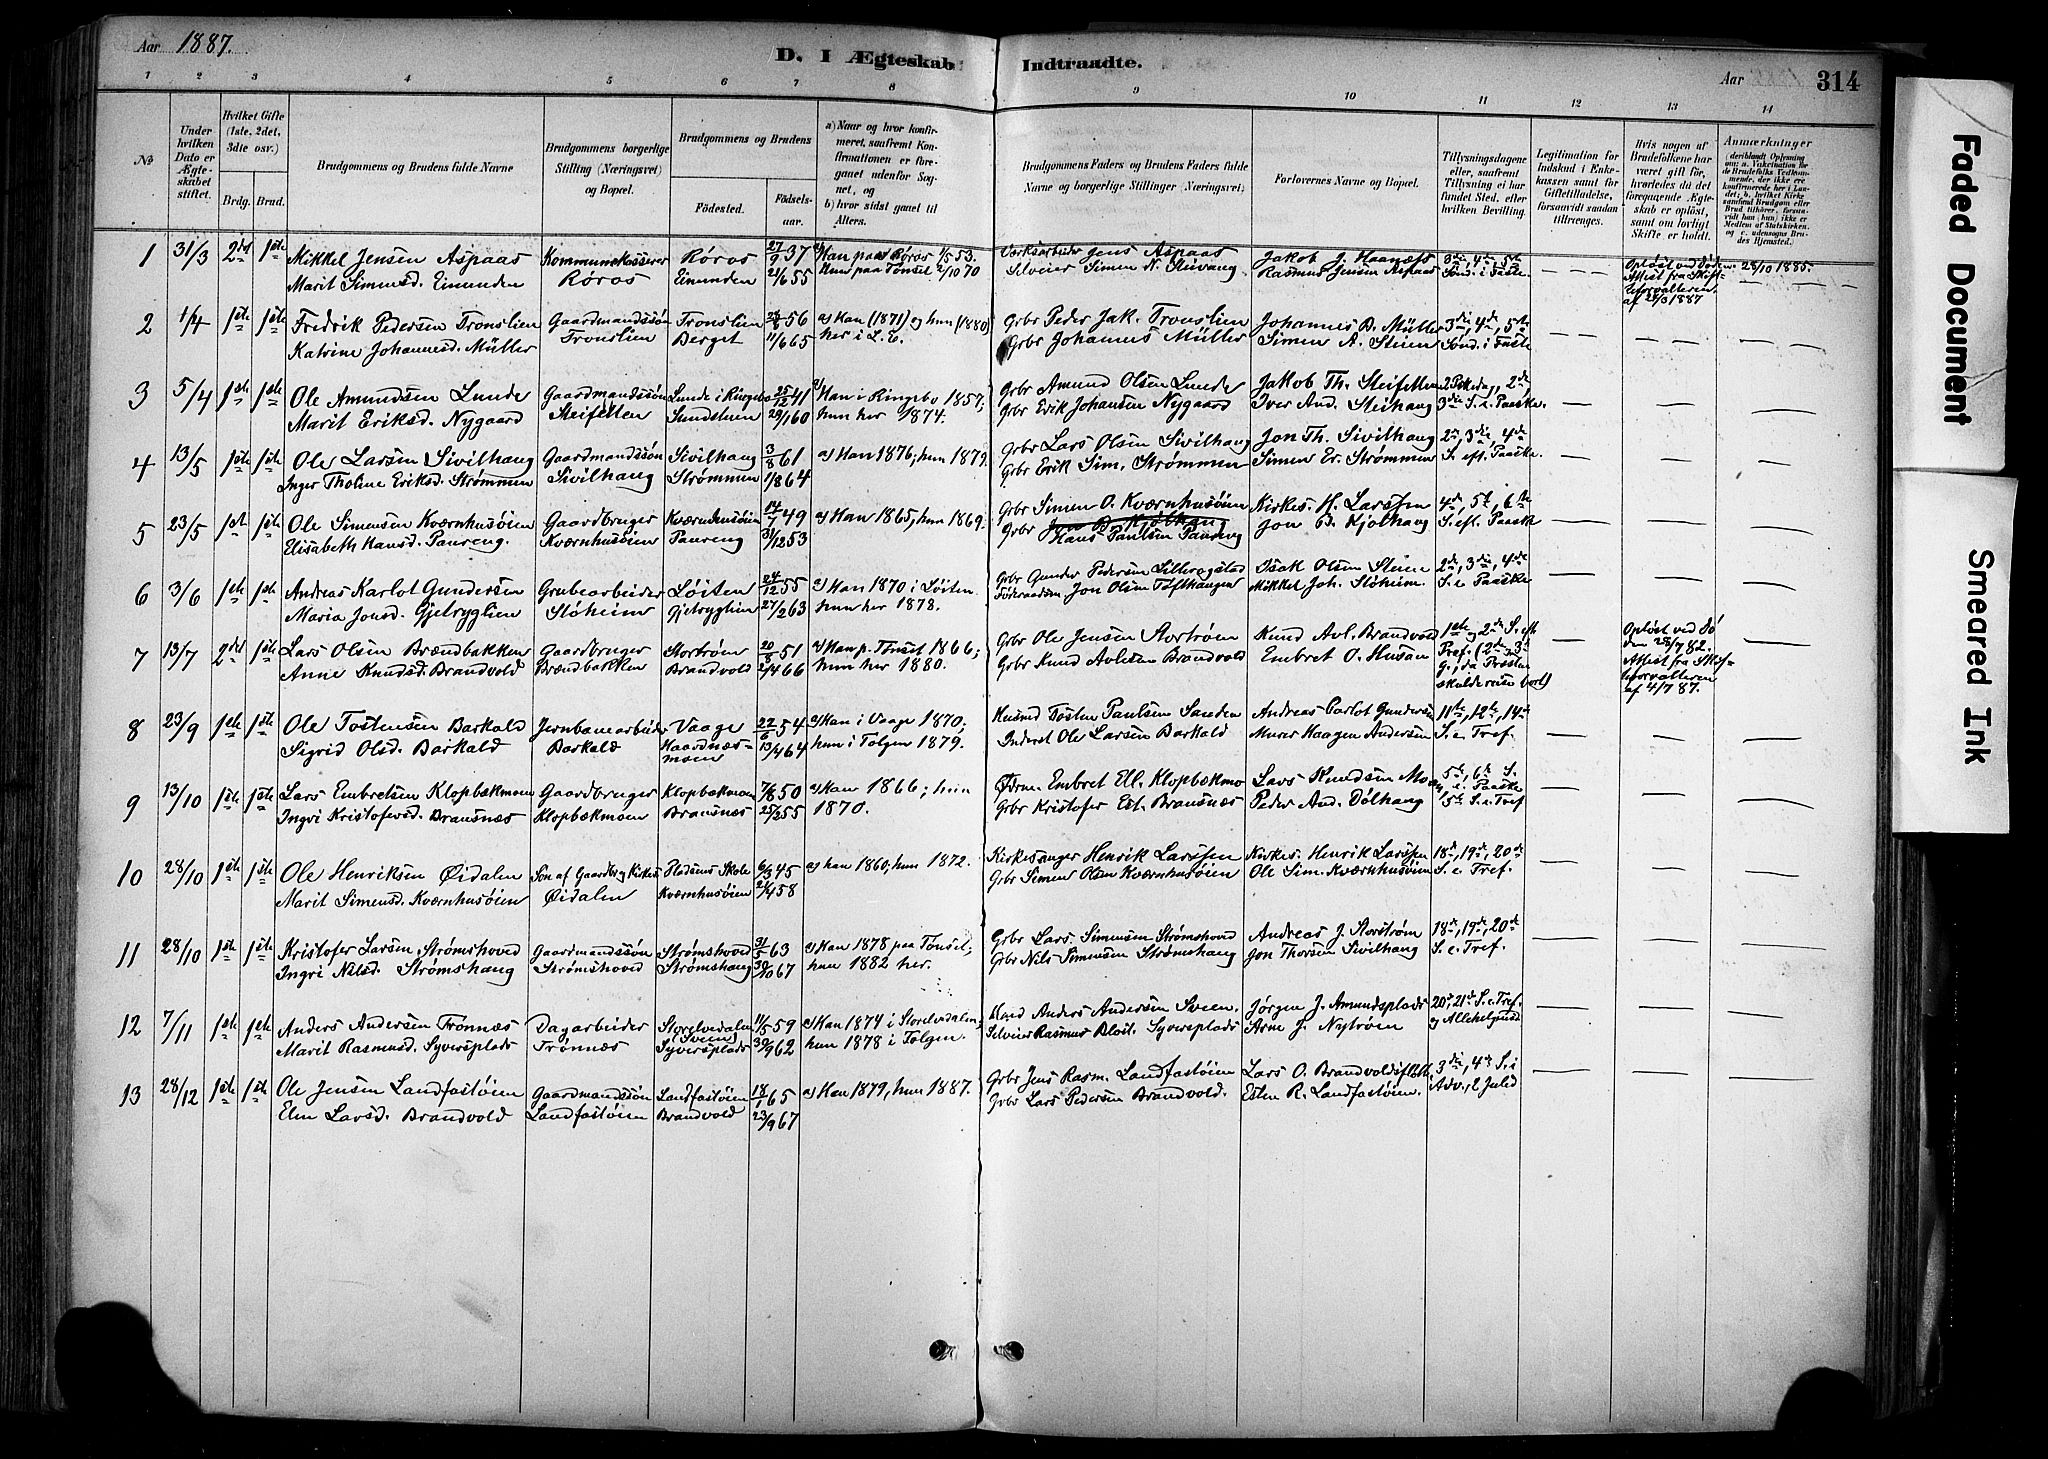 Aar 1887. D. I Ægteskab Indtraadte. Aar 314
1 2 3 4 5 6 7 8 9 10 11 12 13 14
No
Under hvilken Dato er Ægteskabet stiftet.
Hvilket Gifte (1ste, 2det, 3die osv.)
Brdg. Brud.
Brudgommens og Brudens fulde Navne
Brudgommens borgerlige Stilling (Næringsvei) og Bopæl.
Brudgommens og Brudens
Fødested.
Fødselsaar.
a) Naar og hvor konfirmeret, saafremt Konfirmationen er foregaaet udenfor Sognet, og
b) hvor sidst gaaet til Alters.
Brudgommens Faders og Brudens Faders fulde Navne og borgerlige Stillinger (Næringsvei)
Forlovernes Navne og Bopæl.
Tillysningsdagene eller, saafremt Tillysning ei har fundet Sted, efter hvilken Bevilling.
Legitimation for Indskud i Enkekassen samt for Giftetilladelse, forsaavidt saadan tiltrænges.
Hvis nogen af Brudefolkene har været gift før, hvorledes da det foregaaende Ægteskab er opløst, samt om lovligt Skifte er holdt.
Anmærkninger
1 31/3 2det 1ste Mikkel Jensen Aspaas Kommunekasserer Røros 27/9 37 a) Han paa Røros 1/5 53. Verksarbeider Jens Aspaas Jakob J. Haanæss 3die, 4de, 5te Opløst ved Døden 28/10 1885.
Marit Simensd. Eimunden Røros Eimunden 21/6 55 Hun paa Tönset 2/10 70 Selveier Simen N. Steivang Rasmus Jensen Aspaas Sönd. i Faste Attest fra Skifteforvalteren
af 28/3 1887
2 1/4 1ste 1ste Fredrik Pedersen Tronslien Gaardmandssön Tronslien 56 a) Han (1871) og hun (1880) Grbr Peder Jak. Tronslien Johannes D. Müller 3die, 4de, 5te
Katrine Johannesd. Müller Tronslien Berget 11/6 65 her i L. E. Grbr Johannes Müller Simen A. Steien Sönd. i Faste
3 5/4 1ste 1ste Ole Amundsen Lunde Gaardmandssön Lunde i Ringebo 25/12 41 a) Han i Ringebo 1857; Grbr Amund Olsen Lunde Jakob Th. Steifetten 2 Paaskedag, 2de
Marit Eriksd. Nygaard Steifetten 29/1 60 hun her 1874. Grbr Erik Johansen Nygaard Iver And. Steihaug 3die S. e. Paaske.
4 13/5 1ste 1ste Ole Larsen Sivilhaug Gaardmandssön Sivilhaug 3/8 61 a) Han 1876; hun 1879. Grbr Lars Olsen Sivilhaug Jon Th. Sivilhaug 2den, 3die, 4de
Inger Tholine Eriksd. Strømmen Sivilhaug Strømmen 1/8 64 Grbr Erik Sim. Strømmen Simen Er. Strømmen S. eft. Paaske.
5 23/5 1ste 1ste Ole Simensen Kværnhusöien Gaardbruger Kværnhusöien 14/7 49 a) Han 1865, hun 1869. Grbr Simen O. Kværnhusöien Kirkes. H. Larssen 4de, 5te, 6te
Elisabeth Hansd. Paureng. Kværnhusöien Paureng 31/12 53 Grbr Jon B. Kjølhaug Jon B. Kjolhaug S. eft. Paaske
Hans Paulsen Paureng
6 3/6 1ste 1ste Andreas Karlot Gundersen Grubearbeider Løiten 24/12 55 a) Han 1870 i Løiten Grbr Gunder Pedersen Isak Olsen Steien 2de, 3die, 4de
Maria Jonsd. Gjetryglien Støheim Gjetryglien 27/2 63 hun her 1878. Föderaadsm Jon Olsen Töfthaugen Mikkel Joh. Støheim. S. e Paaske
7 13/7 2det 1ste Lars Olsen Brændbakken Gaardbruger Stortrøm 20/8 51 a) Han p. Tönset 1866; Grbr Ole Jensen Stortrøm Knud Avl. Brandvold 1ste og 2de S. eft Opløst ved Döden
Anne Knudsd. Brandvold Brændbakken Brandvold 2/4 66 hun her 1880. Grbr Knud Avlesen Brandvold Embret O. Husan Tref. (2de, 3die G., da Præsten 25/7 82. Attest fra Skifteforvalteren
skulde reise bort) af 4/7 87.
8 23/9 1ste 1ste Ole Tostensen Barkald Jernbanearbeider Vaage 27/6 54 a) Han i Vaage 1870; Husmd Tosten Paulsen Sanden Andreas Carlot Gundersen 11te, 12te, 14de
Sigrid Olsd. Barkald Barkald Haardnæsmoen 13/4 64 hun i Tolgen 1879. Inderst Ole Larsen Barkald Murer Haagen Andersen S. e. Tref.
9 13/10 1ste 1ste Lars Embretsen Klopbækmoen Gaardbruger Klopbækmoen 7/8 50 a) Han 1866; hun Embret Ell. Klopbækmo Lars Knudsen Moen 5te, 6te S. e. Paaske
Ingri Kristofersd. Bransnæs Klopbækmoen Bransnæs 25/2 55 1870. Grbr Kristofer Est. Bransnæs Peder And. Dölhaug 15de S. e. Tref
10 28/10 1ste 1ste Ole Henriksen Øidalen Søn af Gaardbr og Kirkes. Plassens Skole 6/3 45 a) han 1860; hun 1872. Kirkesanger Henrik Larssen Kirkes. Henrik Larssen 18de, 19de, 20de
Marit Simensd. Kværnhusöien Øidalen Kværnhusöien 24/4 58 Grbr Simen Olsen Kværnhusöien Ole Sim. Kværnhusöien S. e. Tref.
11 28/10 1ste 1ste Kristofer Larsen Strømshoved Gaardmandssön Strømshoved 31/5 63 a) Han 1878 paa Tönset; Grbr Lars Simensen Strømshoved Andreas J. Storstrøm 18de, 19de, 20de
Ingri Nilsd. Strømshaug Strømshoved Strømshaug 30/10 67 hun 1882 her. Grbr Nils Simensen Strømshaug Jon Thorsen Sivilhaug S. e. Tref.
12 7/11 1ste 1ste Anders Andersen Trønnæs Dagarbeider Storelvedalen (Sveen) 11/5 59 a) Han 1874 i Storelvedalen; Anders Andersen Sveen Jørgen J. Amundsplads 20de, 21de S. e. Tref.
Marit Rasmusd. Syversplads Trønnæs Syversplads 30/9 62 hun 1878 i Tolgen. Selveier Rasmus Syversplads Arne J. Nytrøen og Allehelgensd
13 28/12 1ste 1ste Ole Jensen Landfastöien Gaardmandssön Landfastöien 18/1 65 a) Han 1879, hun 1887. Grbr Jens Rasm. Landfastöien Lars O. Brandvoldsflötten 3die, 4de S. i
Elen Larsd. Brandvold Landfastöien Brandvold 23/9 67 Grbr Lars Pedersen Brandvold. Esten R. Landfastöien. Adv., 2 Juled
Faded Document
Smeared Ink